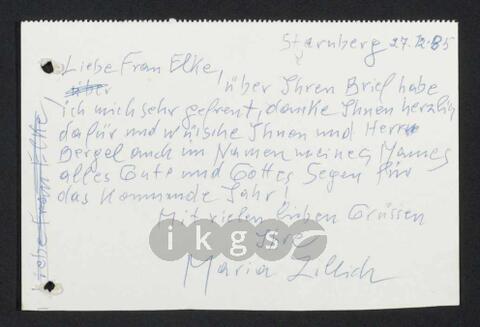 Starnberg 27.12.85
Liebe Frau Elke,
über Ihren Brief habe
ich mich sehr gefreut, danke Ihnen herzlich
dafür und wünsche Ihnen und Herrn
Bergel auch im Namen meines Mannes
alles Gute und Gottes Segen für
das Kommende Jahr!
Mit vielen lieben Grüssen
Ihre
Maria Zillich
Liebe Frau Elke,
ikgs